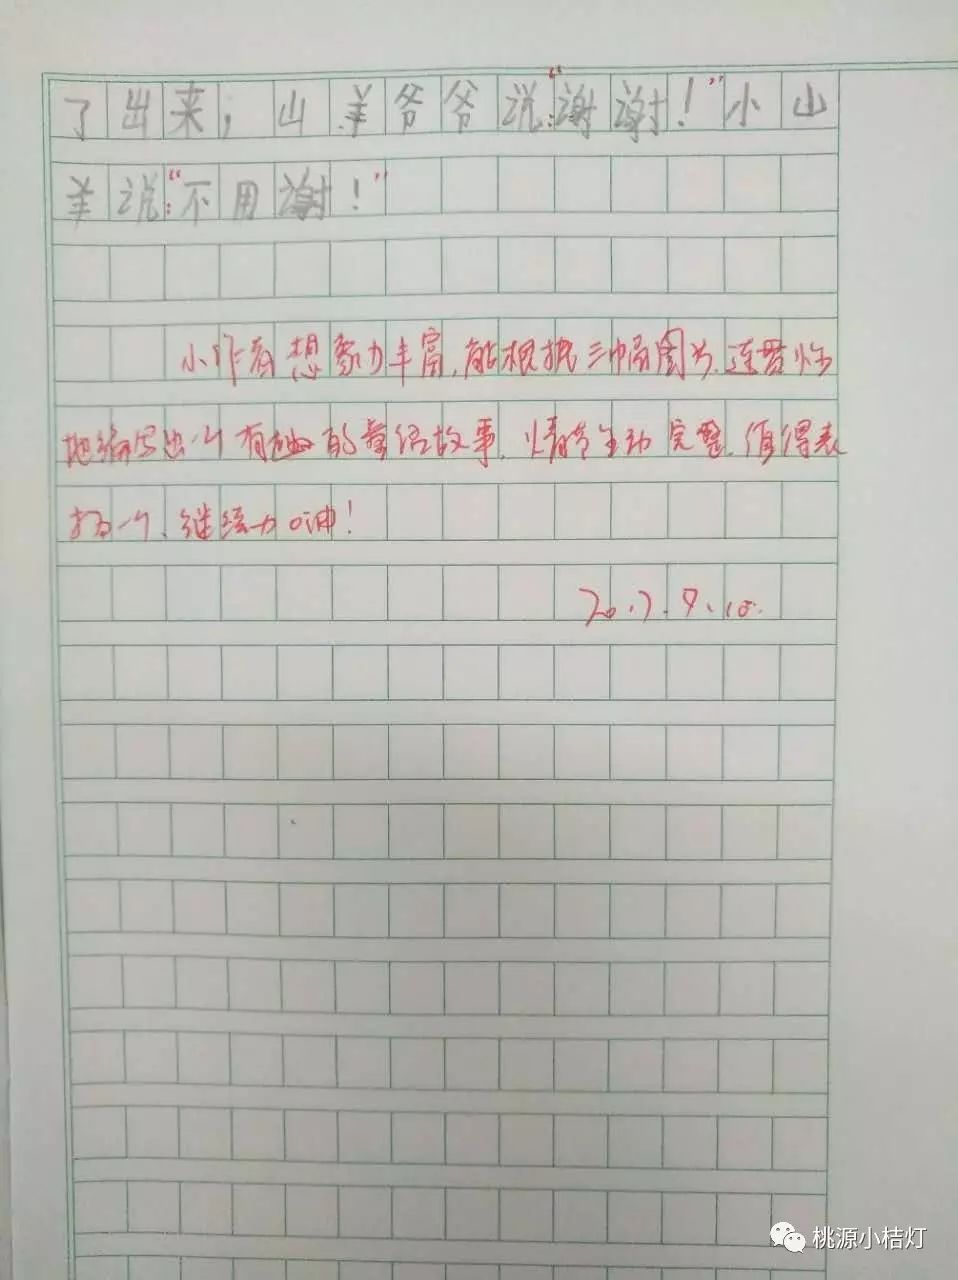 了出来；山羊爷爷说：“谢谢！”小山
羊说：“不用谢！”
小作者想象力丰富，能根据三幅图为，连贯性
地编写出一个有趣的童话故事，情节生动完整，值得表
扬一个，继续加油！
2017.9.10.
桃源小桔灯